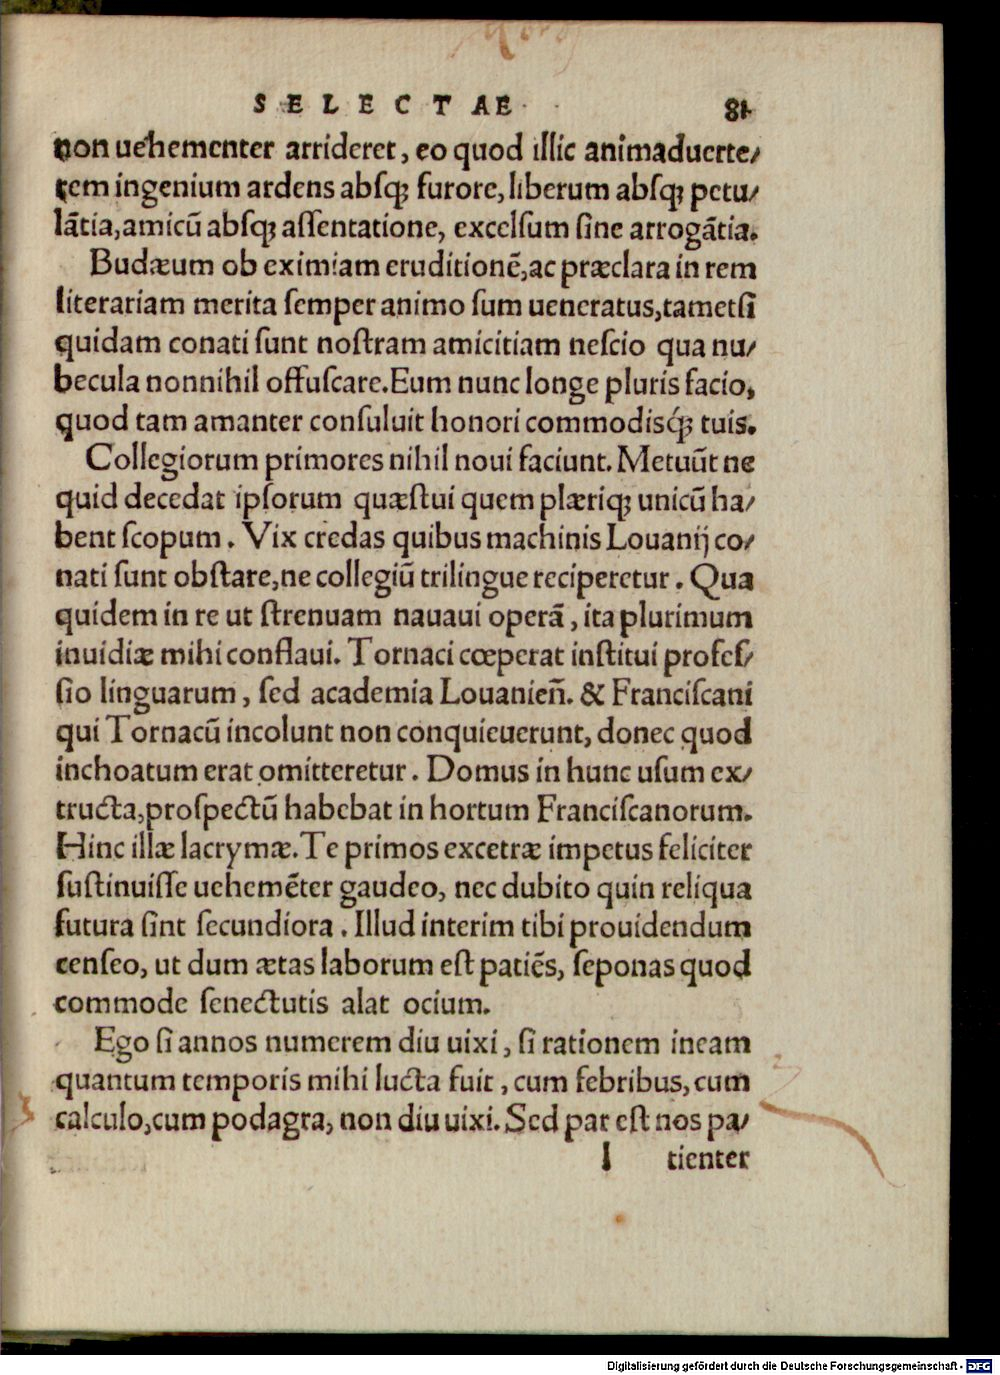 SELECTAE 81
non uehementer arrideret, eo quod illic animaduerte/
tem ingenium ardens absq; furore, liberum absq; petu/
lãtia, amicũ absq; assentatione, excelsum sine arrogãtia.
Budæum ob eximiam eruditionẽ, ac præclara in rem
literariam merita semper animo sum ueneratus, tametsi
quidam conati sunt nostram amicitiam nescio qua nu/
becula nonnihil offuscare. Eum nunc longe pluris facio,
quod tam amanter consuluit honori commodisq́; tuis.
Collegiorum primores nihil noui faciunt. Metuũt ne
quid decedat ipsorum quæstui quem plæriq; unicũ ha/
bent scopum. Vix credas quibus machinis Louanij co/
nati sunt obstare, ne collegiũ trilingue reciperetur. Qua
quidem in re ut strenuam nauaui operã, ita plurimum
inuidiæ mihi conflaui. Tornaci cœperat institui profes/
sio linguarum, sed academia Louanieñ. & Franciscani
qui Tornacũ incolunt non conquieuerunt, donec quod
inchoatum erat omitteretur. Domus in hunc usum ex/
tructa, prospectũ habebat in hortum Franciscanorum.
Hinc illæ lacrymæ. Te primos excetræ impetus feliciter
sustinuisse uehemẽter gaudeo, nec dubito quin reliqua
futura sint secundiora. Illud interim tibi prouidendum
censeo, ut dum ætas laborum est patiẽs, seponas quod
commode senectutis alat ocium.
Ego si annos numerem diu uixi, si rationem ineam
quantum temporis mihi lucta fuit, cum febribus, cum
calculo, cum podagra, non diu uixi. Sed par est nos pa/
l tienter
Digitalisierung gefördert durch die Deutsche Forschungsgemeinschaft - DFG